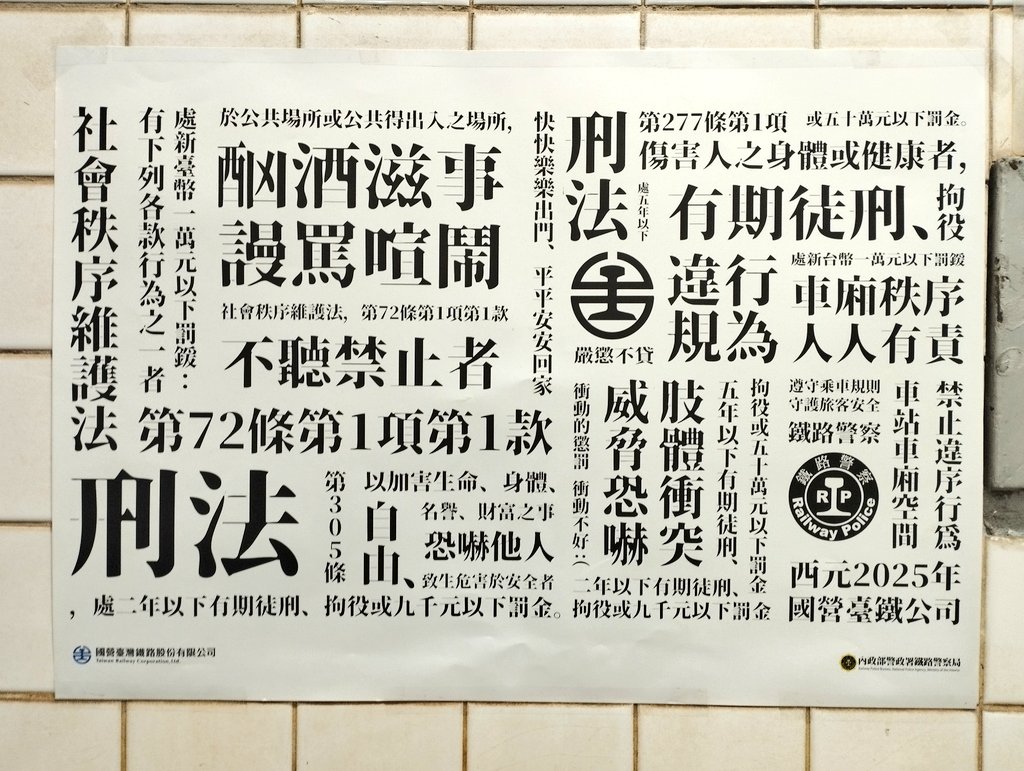 社會秩序維護法
處新臺幣一萬元以下罰鍰：
有下列各款行為之一者
於公共場所或公共得出入之場所,
酗酒滋事
謾罵喧鬧
社會秩序維護法, 第72條第1項第1款
不聽禁止者
第72條第1項第1款
快快樂樂出門、平平安安回家
刑法
第305條
以加害生命、身體、
自由、
名譽、財富之事
恐嚇他人
致生危害於安全者
, 處二年以下有期徒刑、拘役或九千元以下罰金。
刑法
第277條第1項
或五十萬元以下罰金。
傷害人之身體或健康者,
處五年以下
有期徒刑、
拘役
嚴懲不貸
違規
行為
處新台幣一萬元以下罰鍰
車廂秩序
人人有責
衝動的懲罰 衝動不好:(
威脅恐嚇
肢體衝突
五年以下有期徒刑、
拘役或五十萬元以下罰金
二年以下有期徒刑、
拘役或九千元以下罰金
遵守乘車規則
守護旅客安全
鐵路警察
鐵路警察
RP
Railway Police
車站車廂空間
禁止違序行為
西元2025年
國營臺鐵公司
國營臺灣鐵路股份有限公司
Taiwan Railway Corporation,Ltd.
內政部警政署鐵路警察局